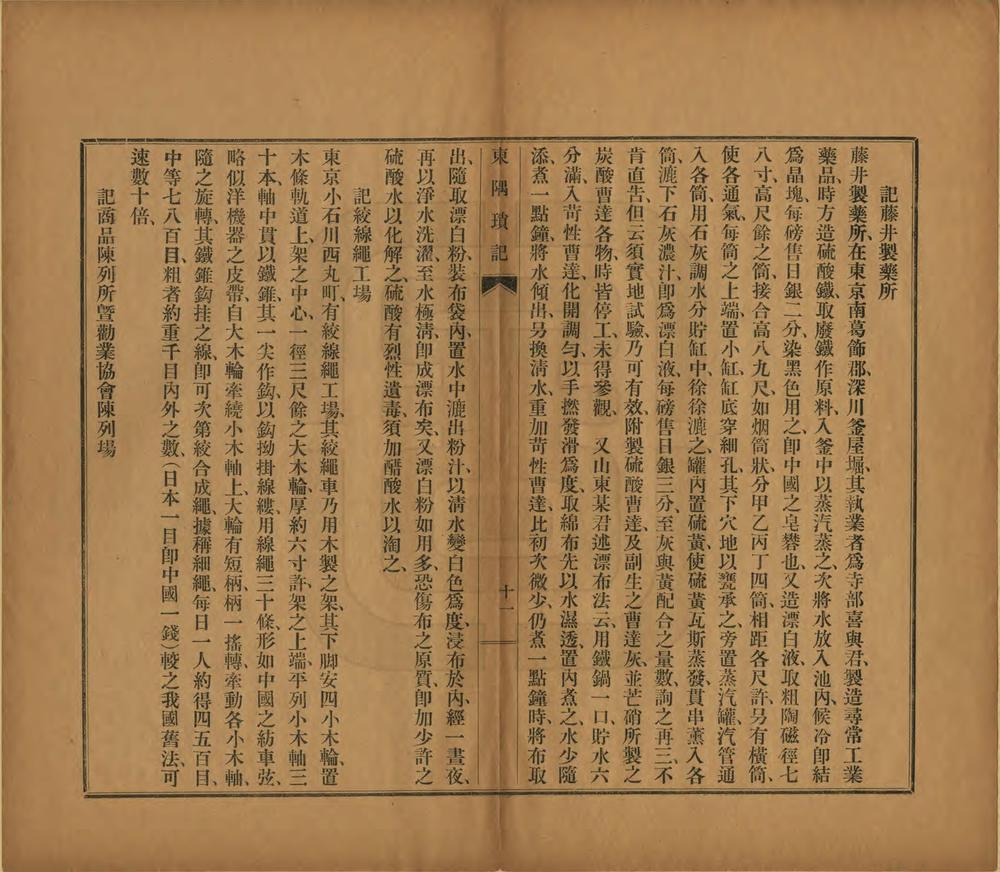 記藤井製藥所
藤井製藥所、在東京南葛飾郡、深川釜屋堀、其執業者爲寺部喜與君、製造尋常工業
藥品、時方造硫酸鐵、取廢鐵作原料、入釜中以蒸汽蒸之、次將水放入池內、候冷卽結
爲晶塊、每磅售日銀二分、染黑色用之、卽中國之皂礬也、又造漂白液、取粗陶磁徑七
八寸、高尺餘之筒、接合高八九尺、如烟筒狀、分甲乙丙丁四筒、相距各尺許、另有橫筒、
使各通氣、每筒之上端、置小缸、缸底穿細孔、其下穴地以甕承之、旁置蒸汽罐、汽管通
入各筒、用石灰調水分貯缸中、徐徐漉之、罐內置硫黃、使硫黃瓦斯蒸發、貫串薰入各
筒、漉下石灰濃汁、卽爲漂白液、每磅售日銀三分、至灰與黃配合之量數、詢之再三、不
肯直告、但云須實地試驗、乃可有效、附製硫酸曹達、及副生之曹達灰、並芒硝所製之
炭酸曹達各物、時皆停工、未得參觀、　又山東某君述漂布法云、用鐵鍋一口、貯水六
分滿、入苛性曹達、化開調勻、以手撚發滑爲度、取綿布先以水濕透、置內煮之、水少隨
添、煮一點鐘、將水傾出、另換淸水、重加苛性曹達、比初次微少、仍煮一點鐘時、將布取
東隅瑣記
十一
出、隨取漂白粉、裝布袋內、置水中漉出粉汁、以淸水變白色爲度、浸布於內、經一晝夜、
再以淨水洗濯、至水極淸、卽成漂布矣、又漂白粉如用多、恐傷布之原質、卽加少許之
硫酸水以化解之、硫酸有烈性遺毒、須加醋酸水以淘之、
記絞線繩工場
東京小石川西丸町、有絞線繩工場、其絞繩車乃用木製之架、其下脚安四小木輪、置
木條軌道上、架之中心、一徑三尺餘之大木輪、厚約六寸許、架之上端、平列小木軸三
十本、軸中貫以鐵錐、其一尖作鈎、以鈎拗掛線縷、用線繩三十條、形如中國之紡車弦、
略似洋機器之皮帶、自大木輪牽繞小木軸上、大輪有短柄、柄一搖轉、牽動各小木軸、
隨之旋轉、其鐵錐鈎挂之線、卽可次第絞合成繩、據稱細繩、每日一人約得四五百目、
中等七八百目、粗者約重千目內外之數、（日本一目卽中國一錢）較之我國舊法、可
速數十倍、
記商品陳列所曁勸業協會陳列場